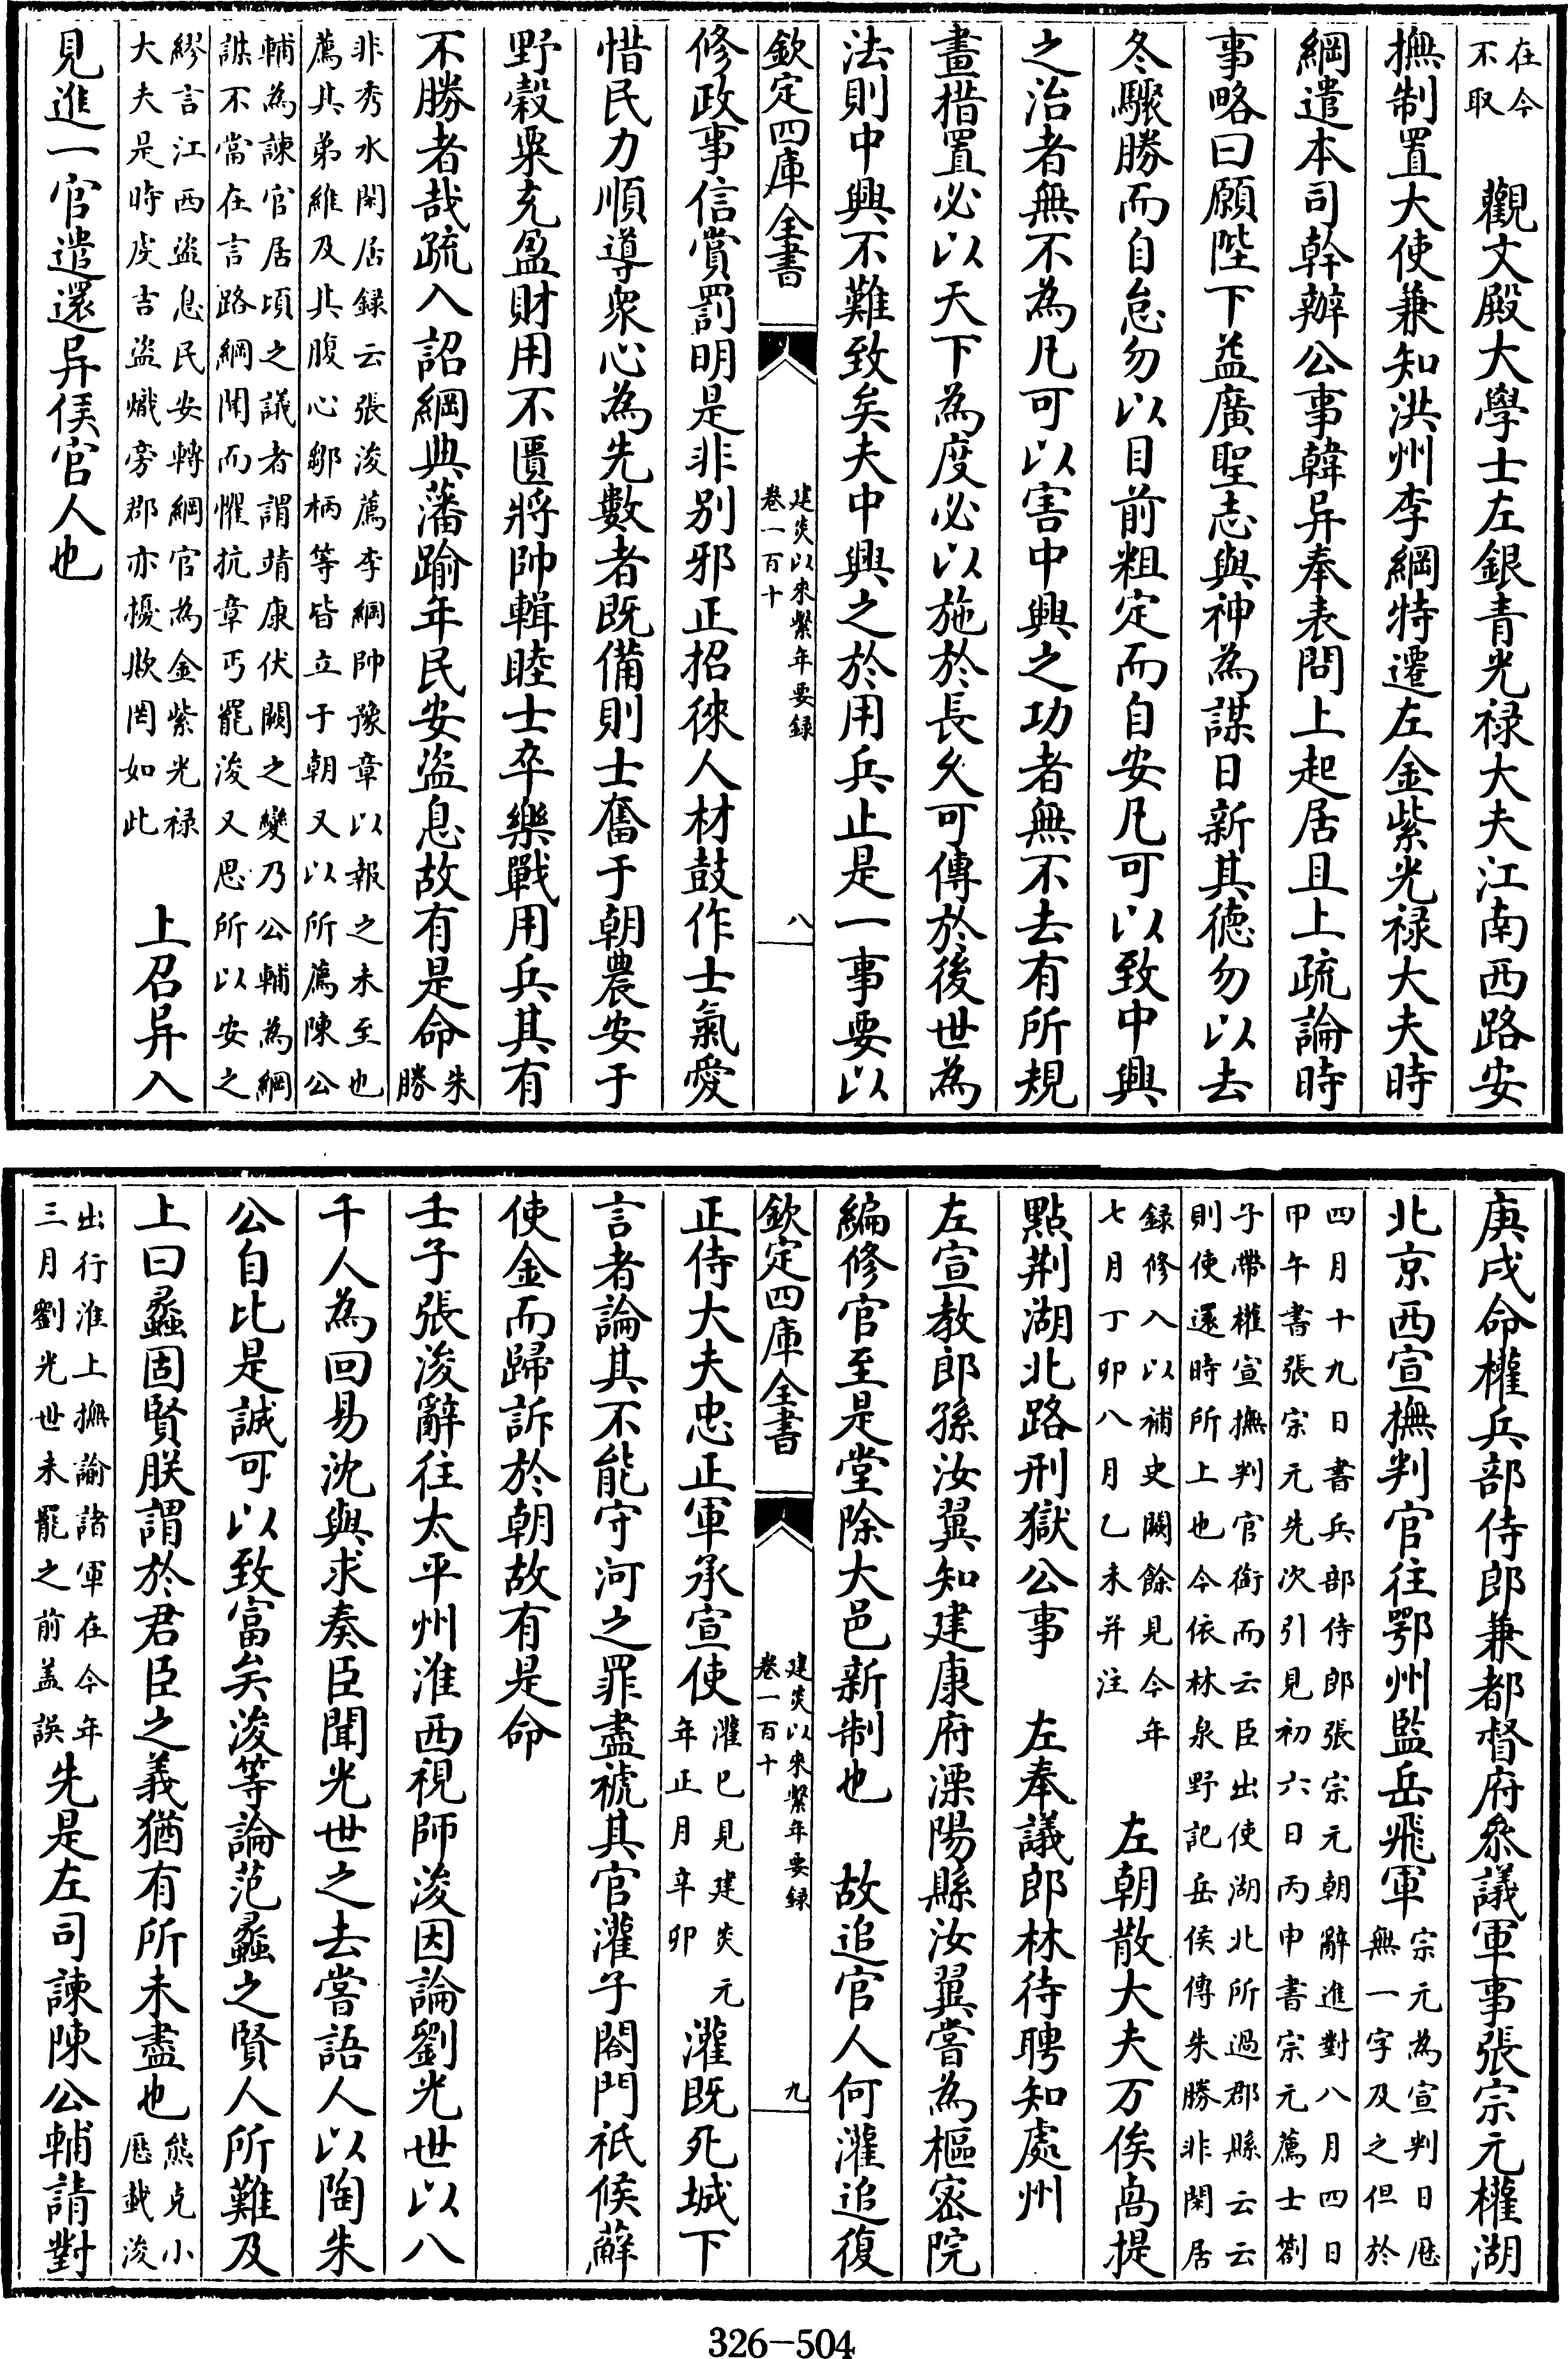 在今
不取
觀文殿大學士左銀青光禄大夫江南西路安
撫制置大使兼知洪州李綱特遷左金紫光禄大夫時
綱遣本司幹辦公事韓昪奉表問上起居且上疏論時
事略曰願陛下益廣聖志與神為謀日新其德勿以去
冬驟勝而自怠勿以目前粗定而自安凡可以致中興
之治者無不為凡可以害中興之功者無不去有所規
畫措置必以天下為度必以施於長久可傳於後世為
法則中興不難致矣夫中興之於用兵止是一事要以
欽定四庫全書
建炎以來繫年要録
卷一百十
八
修政事信賞罰明是非别邪正招徠人材鼓作士氣愛
惜民力順導衆心為先數者既備則士奮于朝農安于
野榖粟充盈財用不匱將帥輯睦士卒樂戰用兵其有
不勝者哉疏入詔綱典藩踰年民安盗息故有是命
朱
勝
非秀水閑居録云張浚薦李綱帥豫章以報之未至也
薦其弟維及其腹心鄒柄等皆立于朝又以所薦陳公
輔為諫官居頃之議者謂靖康伏闕之變乃公輔為綱
謀不當在言路綱聞而懼抗章丐罷浚又思所以安之
繆言江西盗息民安轉綱官為金紫光禄
大夫是時虔吉盗熾旁郡亦擾欺罔如此
上召昪入
見進一官遣還昪侯官人也
庚戍命權兵部侍郎兼都督府叅議軍事張宗元權湖
北京西宣撫判官往鄂州監岳飛軍
宗元為宣判日厯
無一字及之但於
四月十九日書兵部侍郎張宗元朝辭進對八月四日
甲午書張宗元先次引見初六日丙申書宗元薦士劄
子帶權宣撫判官銜而云臣出使湖北所過郡縣云云
則使還時所上也今依林泉野記岳侯傳朱勝非閑居
録修入以補史闕餘見今年
七月丁卯八月乙未并注
左朝散大夫万俟卨提
點荆湖北路刑獄公事
左奉議郎林待聘知處州
左宣教郎孫汝翼知建康府溧陽縣汝翼嘗為樞密院
編修官至是堂除大邑新制也
故追官人何灌追復
欽定四庫全書
建炎以來繫年要録
卷一百十
九
正侍大夫忠正軍承宣使
灌已見建炎元
年正月辛卯
灌既死城下
言者論其不能守河之罪盡褫其官灌子閤門祗候蘚
使金而歸訴於朝故有是命
壬子張浚辭往太平州淮西視師浚因論劉光世以八
千人為回易沈與求奏臣聞光世之去嘗語人以陶朱
公自比是誠可以致富矣浚等論范蠡之賢人所難及
上曰蠡固賢朕謂於君臣之義猶有所未盡也
熊克小
厯載浚
出行淮上撫諭諸軍在今年
三月劉光世未罷之前盖誤
先是左司諫陳公輔請對
326-504